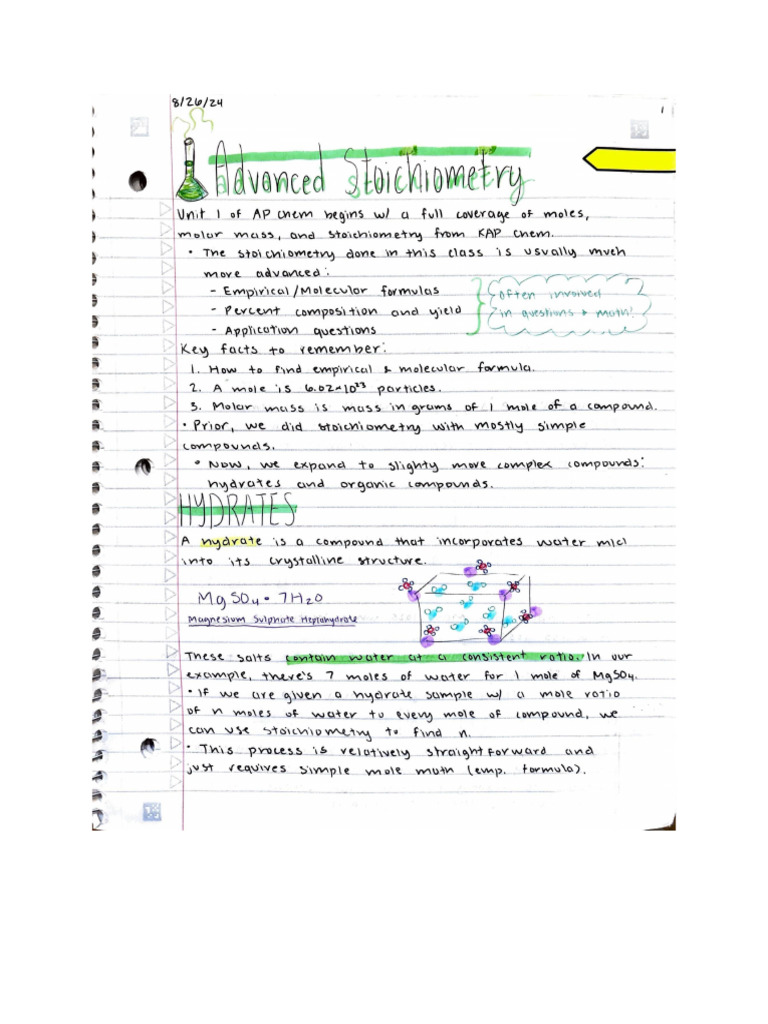 8/26/24
1
Advanced Stoichiometry
Unit 1 of AP Chem begins w/ a full coverage of moles,
molar mass, and stoichiometry from KAP Chem.
• The stoichiometry done in this class is usually much
more advanced:
- Empirical/Molecular formulas
- Percent composition and yield
- Application questions
often involved
in questions + math!
Key facts to remember:
1. How to find empirical & molecular formula.
2. A mole is 6.02×10²³ particles.
3. Molar mass is mass in grams of 1 mole of a compound.
• Prior, we did stoichiometry with mostly simple
compounds.
• Now, we expand to slighty more complex compounds:
hydrates and organic compounds.
HYDRATES
A hydrate is a compound that incorporates water
into its crystalline structure.
MgSO₄ • 7H₂O
Magnesium Sulphate Heptahydrate
These salts contain water at a consistent ratio. In our
example, there's 7 moles of water for 1 mole of MgSO₄.
• If we are given a hydrate sample w/ a mole ratio
of n moles of water to every mole of compound, we
can use stoichiometry to find n.
• This process is relatively straightforward and
just requires simple mole math (emp. formula).